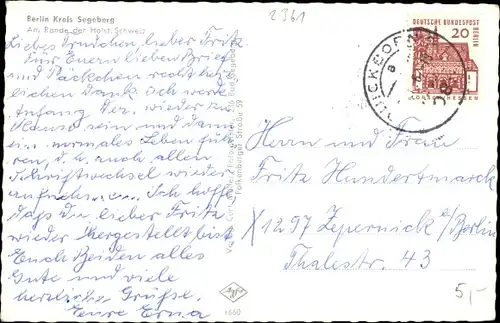 2361
Berlin Kreis Segeberg
Am Rande der Holst. Schweiz
Liebes Trudchen, lieber Fritz
Für Euern lieben Brief
und Päckchen recht herz-
lichen Dank ich werde
Anfang Dez. wieder zu
Hause sein und dann
ein normales Leben füh-
ren, d. h. auch allen
Schriftwechsel wieder
aufnehmen. Ich hoffe
dass Du, lieber Fritz
wieder hergestellt bist
Euch Beiden alles
Gute und viele
herzliche Grüße.
Eure Erna
Falkenburger Straße 59
660
DEUTSCHE BUNDESPOST
BERLIN
20
LORSCH HESSEN
Herrn und Frau
Fritz Hundertmarck
X1297 Zepernick b/Berlin
Thalestr. 43
5,-